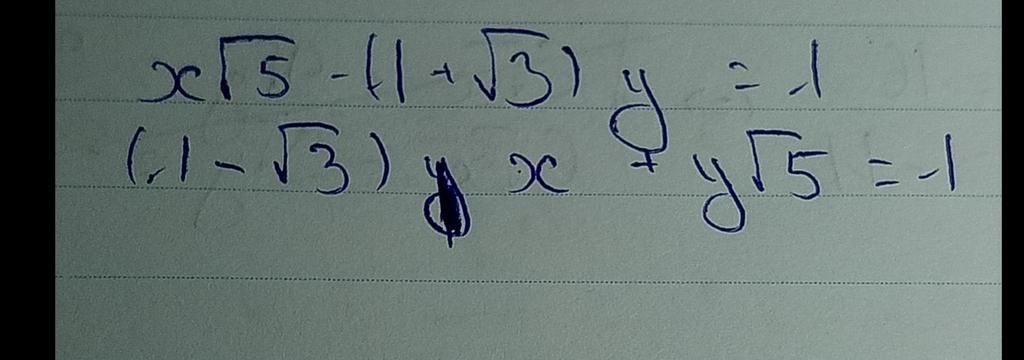 x√5 - (1 + √3) y = 1
(1 - √3) x + y√5 = 1